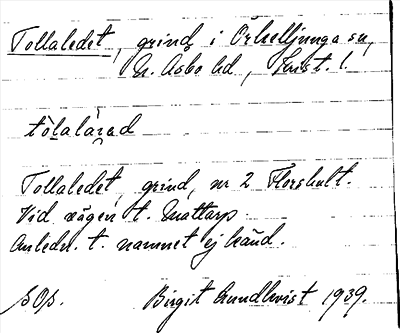 Tollaledet, grind i Örkelljunga sn,
N. Åsbo hd, Krist. l.
tòlalàʒad
Tollaledet, grind, nr 2 Florshult.
Vid vägen t. Mattarp.
Anledn. t. namnet ej känd.
SOS. Birgit Lundkvist 1939.